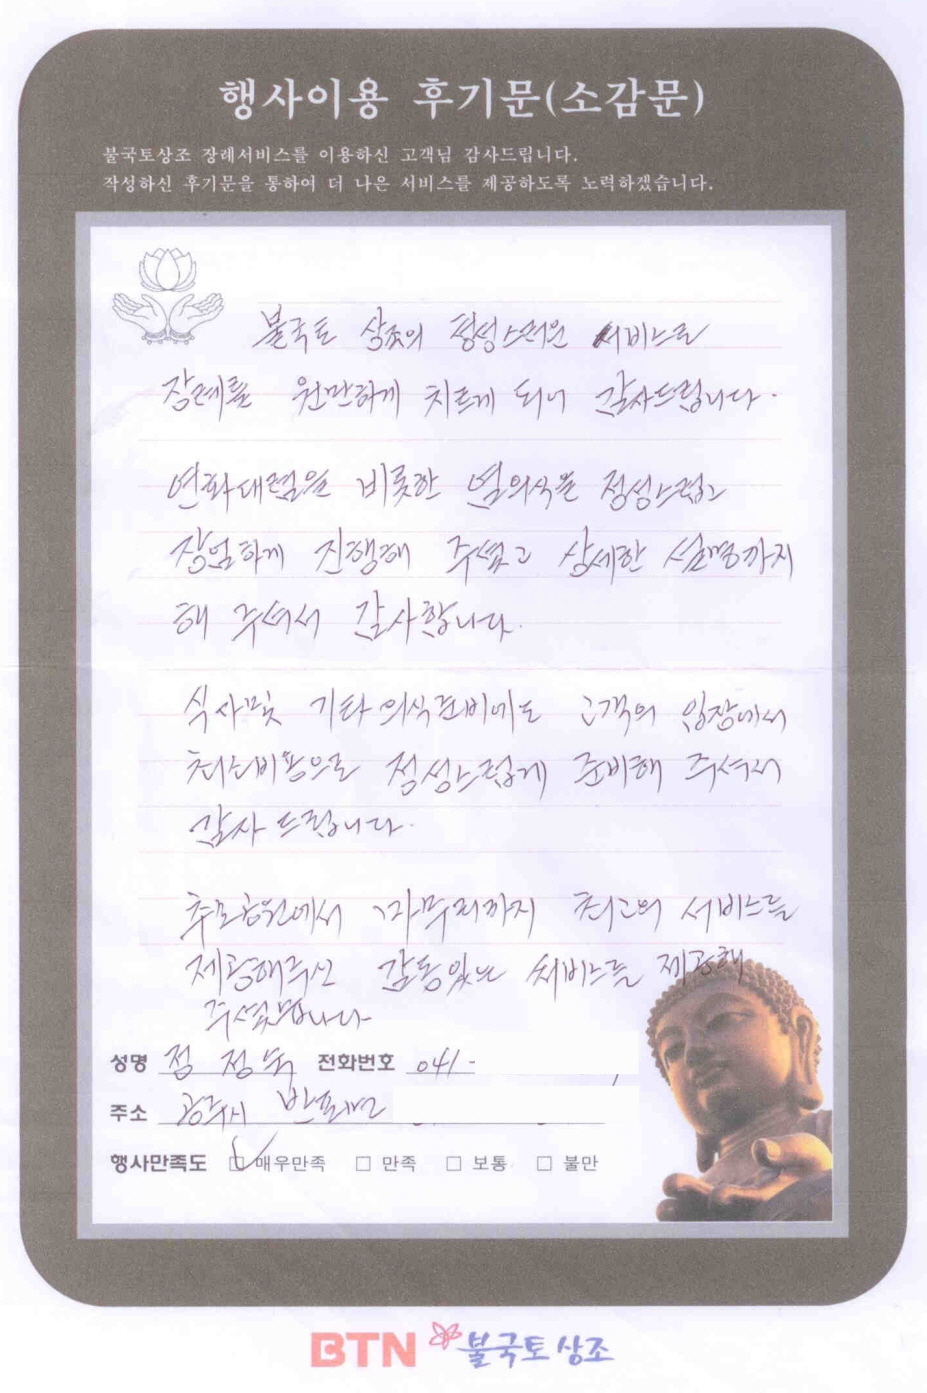 행사이용 후기문(소감문)
불국토상조 장례서비스를 이용하신 고객님 감사드립니다.
작성하신 후기문을 통하여 더 나은 서비스를 제공하도록 노력하겠습니다.
불국토 상조의 정성스러운 서비스로
장례를 원만하게 치르게 되어 감사드립니다.
연화대렴을 비롯한 염의식을 정성스럽고
장엄하게 진행해 주셨고 상세한 설명까지
해 주셔서 감사합니다.
식사및 기타 의식준비에도 고객의 입장에서
최소비용으로 정성스럽게 준비해 주셔서
감사 드립니다.
추모공원에서 마무리까지 최고의 서비스를
제공해주신 감동있는 서비스를 제공해
주셨습니다
성명 정 정욱 전화번호 041-
주소 공주시 반포면
행사만족도 ☑ 매우만족 □ 만족 □ 보통 □ 불만
BTN 불국토상조